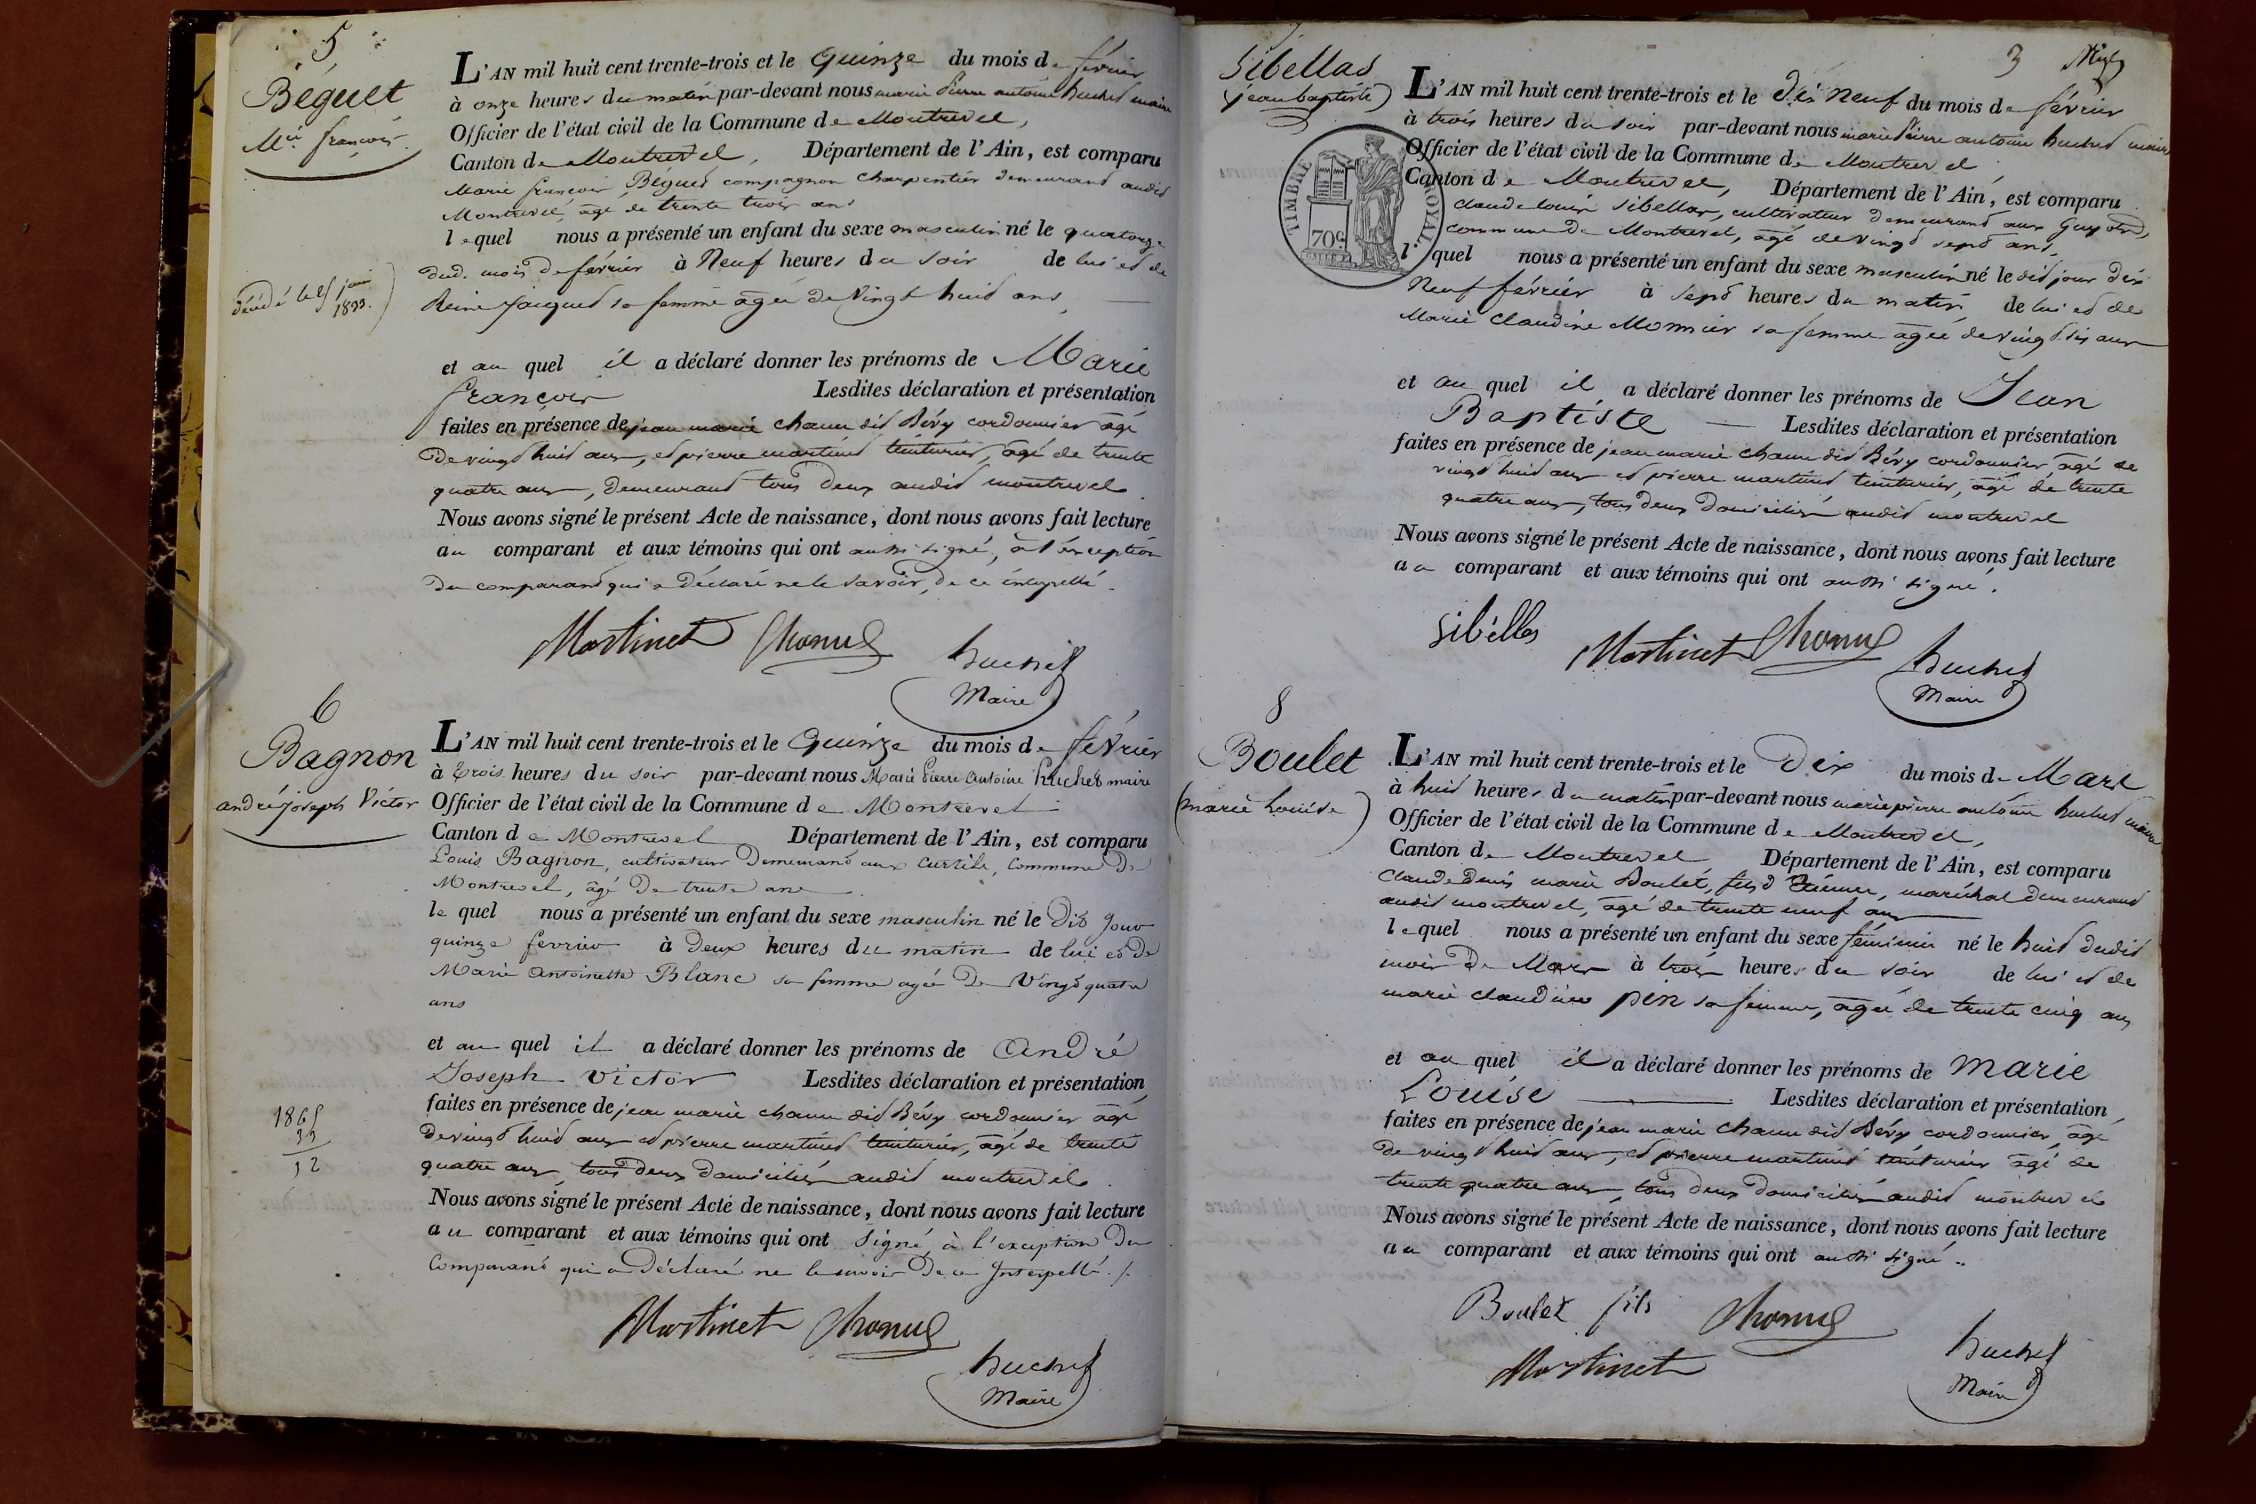 5
Béguet
Mie françois
L'AN mil huit cent trente-trois et le Quinze du mois de février
à onze heures du matin par-devant nous marie Pierre antoine huchet maire
Officier de l'état civil de la Commune de Montrevel,
Canton de Montrevel, Département de l'Ain, est comparu
Marie françois Béguet compagnon charpentier demeurant audit
Montrevel, agé de trente trois ans
lequel nous a présenté un enfant du sexe masculin né le quatorze
dud. mois de février à Neuf heures du soir de lui et de
Reine Jacquet sa femme agée de Vingt huit ans,
décédé le
1833.
et au quel il a déclaré donner les prénoms de Marie
françois Lesdites déclaration et présentation
faites en présence de jean marie chanu dit Béry cordonnier agé
de vingt huit ans, et pierre martinet teinturier, agé de trente
quatre ans, demeurant tous deux audit montrevel.
Nous avons signé le présent Acte de naissance, dont nous avons fait lecture
au comparant et aux témoins qui ont aussi signé, à l'exception
du comparant qui a déclaré ne le savoir, de ce interpellé.
Martinet Chanu
huchet
Maire
6
Bagnon
andré joseph Victor
L'AN mil huit cent trente-trois et le Quinze du mois de février
à trois heures du soir par-devant nous Marie Pierre Antoine huchet maire
Officier de l'état civil de la Commune de Montrevel
Canton de Montrevel Département de l'Ain, est comparu
Louis Bagnon, cultivateur Demeurant aux Curtils, Commune De
Montrevel, âgé De trente ans
le quel nous a présenté un enfant du sexe masculin né le Dit Jour
quinze fevrier à Deux heures du matin de lui et De
Marie Antoinette Blanc sa femme agée De Vingt quatre
ans
et au quel il a déclaré donner les prénoms de André
Joseph Victor Lesdites déclaration et présentation
faites en présence de jean marie chanu dit Béry cordonnier agé
de vingt huit ans et pierre martinet teinturier, agé de trente
quatre ans, tous deux domiciliés audit montrevel.
1865
33
32
Nous avons signé le présent Acte de naissance, dont nous avons fait lecture
au comparant et aux témoins qui ont signé, à l'exception Du
Comparant qui a Déclaré ne le savoir De ce Interpellé ./.
Martinet Chanu
huchet
Maire
3
Sibellas
(jean baptiste)
L'AN mil huit cent trente-trois et le Dix neuf du mois de février
à trois heures du soir par-devant nous marie Pierre antoine huchet maire
Officier de l'état civil de la Commune de Montrevel
Canton de Montrevel, Département de l'Ain, est comparu
claude louis Sibellas, cultivateur demeurant aux Guyots,
commune de Montrevel, agé de vingt sept ans,
TIMBRE ROYAL
70c.
lequel nous a présenté un enfant du sexe masculin né le dit jour dix
Neuf février à sept heures du matin de lui et de
Marie Claudine Monnier sa femme agée de vingt six ans
et au quel il a déclaré donner les prénoms de Jean
Baptiste Lesdites déclaration et présentation
faites en présence de jean marie chanu dit Béry cordonnier, agé de
vingt huit ans et pierre martinet teinturier, agé de trente
quatre ans, tous deux domiciliés audit montrevel
Nous avons signé le présent Acte de naissance, dont nous avons fait lecture
au comparant et aux témoins qui ont aussi signé.
Sibellas Martinet Chanu
huchet
Maire
8
Boulet
(marie Louise)
L'AN mil huit cent trente-trois et le Dix du mois de Mars
à huit heures du matin par-devant nous marie pierre antoine huchet maire
Officier de l'état civil de la Commune de Montrevel,
Canton de Montrevel Département de l'Ain, est comparu
Claude Denis marie Boulet, fils d'Etienne, maréchal demeurant
audit montrevel, agé de trente neuf ans
lequel nous a présenté un enfant du sexe féminin né le huit dudit
mois de Mars à trois heures du soir de lui et de
marie claudine pin sa femme, agée de trente cinq ans
et au quel il a déclaré donner les prénoms de marie
Louise Lesdites déclaration et présentation
faites en présence de jean marie chanu dit Béry cordonnier, agé
de vingt huit ans, et pierre martinet teinturier agé de
trente quatre ans, tous deux domiciliés audit montrevel
Nous avons signé le présent Acte de naissance, dont nous avons fait lecture
au comparant et aux témoins qui ont aussi signé..
Boulet fils Chanu
huchet
Martinet
Maire